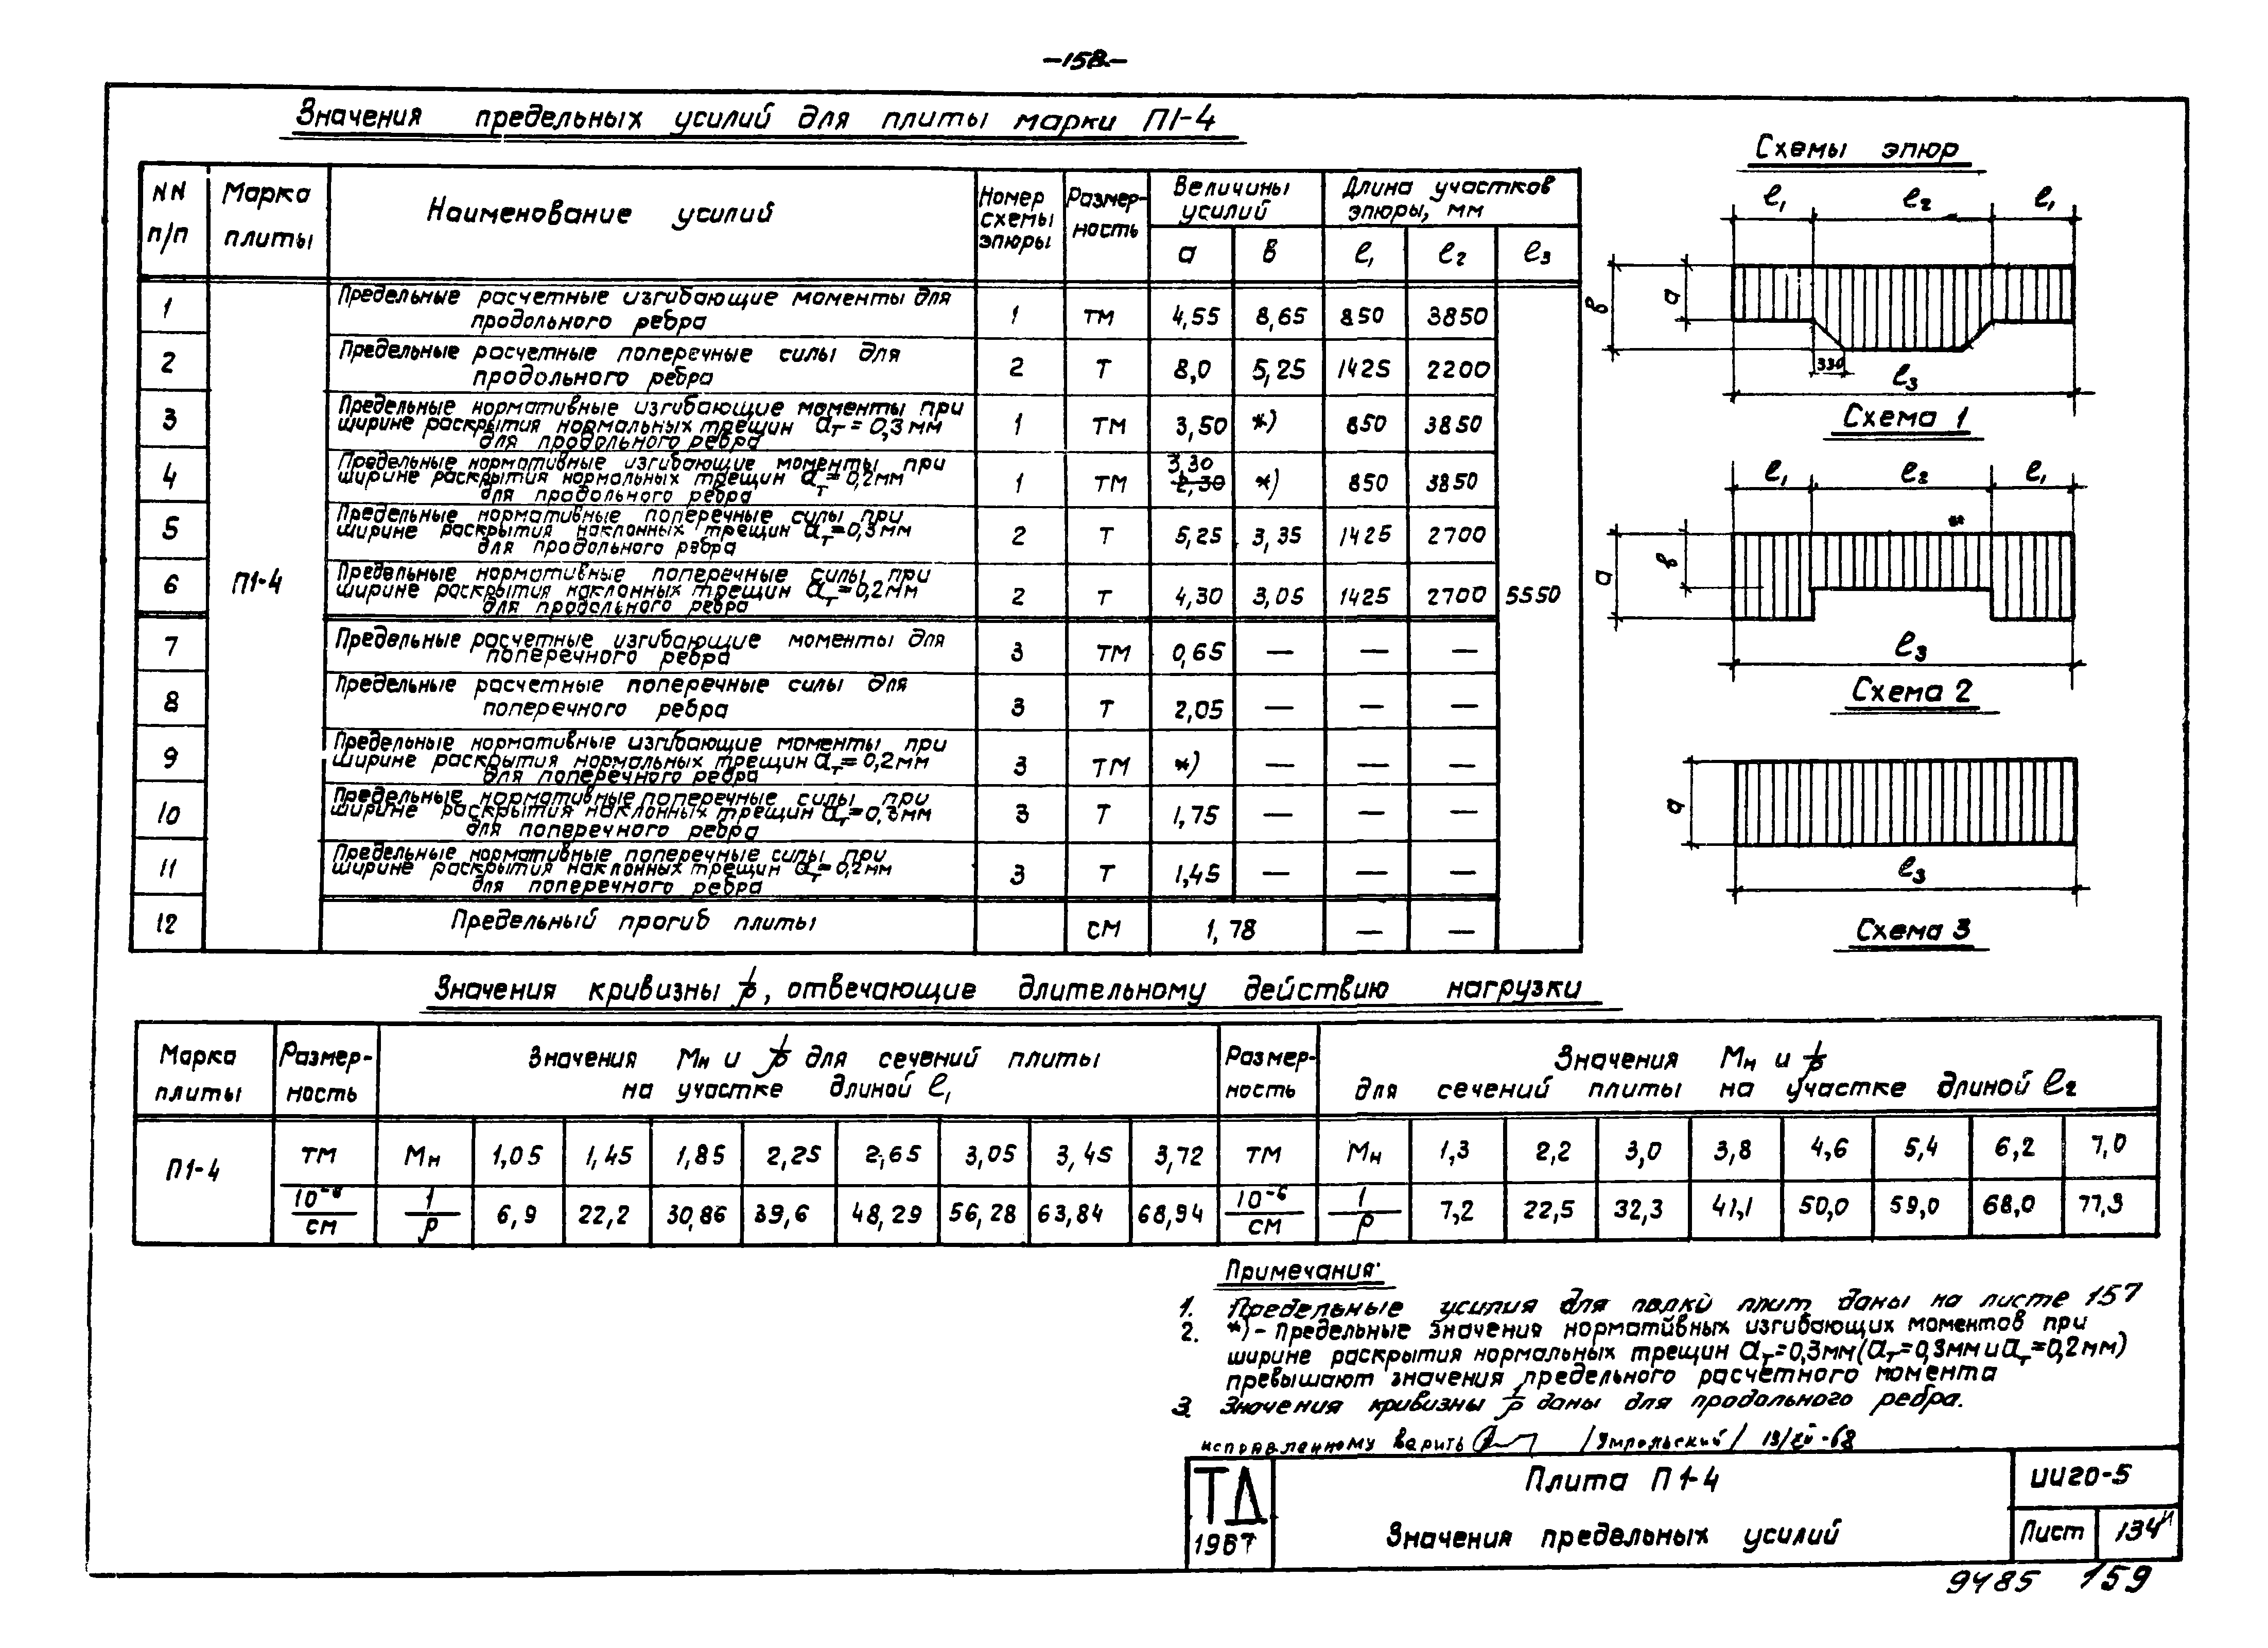 -158-
Значения предельных усилий для плиты марки П1-4
NN п/п | Марка плиты | Наименование усилий | Номер схемы эпюры | Размерность | Величины усилий | Длина участков эпюры, мм
а | в | ℓ₁ | ℓ₂ | ℓ₃
1 | Предельные расчетные изгибающие моменты для продольного ребра | 1 | тм | 4,55 | 8,65 | 850 | 3850
2 | Предельные расчетные поперечные силы для продольного ребра | 2 | т | 8,0 | 5,25 | 1425 | 2200
3 | Предельные нормативные изгибающие моменты при ширине раскрытия нормальных трещин aт=0,3мм для продольного ребра | 1 | тм | 3,50 | *) | 850 | 3850
4 | Предельные нормативные изгибающие моменты при ширине раскрытия нормальных трещин aт=0,2мм для продольного ребра | 1 | тм | 3,30 | *) | 850 | 3850
5 | Предельные нормативные поперечные силы при ширине раскрытия наклонных трещин aт=0,3мм для продольного ребра | 2 | т | 5,25 | 3,35 | 1425 | 2700
6 | П1-4 | Предельные нормативные поперечные силы при ширине раскрытия наклонных трещин aт=0,2мм для продольного ребра | 2 | т | 4,30 | 3,05 | 1425 | 2700 | 5550
7 | Предельные расчетные изгибающие моменты для поперечного ребра | 3 | тм | 0,65 | — | — | —
8 | Предельные расчетные поперечные силы для поперечного ребра | 3 | т | 2,05 | — | — | —
9 | Предельные нормативные изгибающие моменты при ширине раскрытия нормальных трещин aт=0,2мм для поперечного ребра | 3 | тм | *) | — | — | —
10 | Предельные нормативные поперечные силы при ширине раскрытия наклонных трещин aт=0,3мм для поперечного ребра | 3 | т | 1,75 | — | — | —
11 | Предельные нормативные поперечные силы при ширине раскрытия наклонных трещин aт=0,2мм для поперечного ребра | 3 | т | 1,45 | — | — | —
12 | Предельный прогиб плиты | см | 1,78 | — | —
Схемы эпюр
ℓ₁ ℓ₂ ℓ₁
в а
330
ℓ₃
Схема 1
ℓ₁ ℓ₂ ℓ₁
а в
ℓ₃
Схема 2
а
ℓ₃
Схема 3
Значения кривизны 1/ρ, отвечающие длительному действию нагрузки
Марка плиты | Размерность | Значения Mн и 1/ρ для сечений плиты на участке длиной ℓ₁ | Размерность | Значения Mн и 1/ρ для сечений плиты на участке длиной ℓ₂
П1-4 | тм | Mн | 1,05 | 1,45 | 1,85 | 2,25 | 2,65 | 3,05 | 3,45 | 3,72 | тм | Mн | 1,3 | 2,2 | 3,0 | 3,8 | 4,6 | 5,4 | 6,2 | 7,0
10⁻⁶/см | 1/ρ | 6,9 | 22,2 | 30,86 | 39,6 | 48,29 | 56,28 | 63,84 | 68,94 | 10⁻⁶/см | 1/ρ | 7,2 | 22,5 | 32,3 | 41,1 | 50,0 | 59,0 | 68,0 | 77,3
Примечания:
1. Предельные усилия для полки плит даны на листе 157
2. *) - Предельные значения нормативных изгибающих моментов при
ширине раскрытия нормальных трещин aт=0,3мм(aт=0,3мм и aт=0,2мм)
превышают значения предельного расчетного момента
3. Значения кривизны 1/ρ даны для продольного ребра.
исправленному верить
ТД
1967
Плита П1-4
Значения предельных усилий
ИИ20-5
Лист 134
9485 159